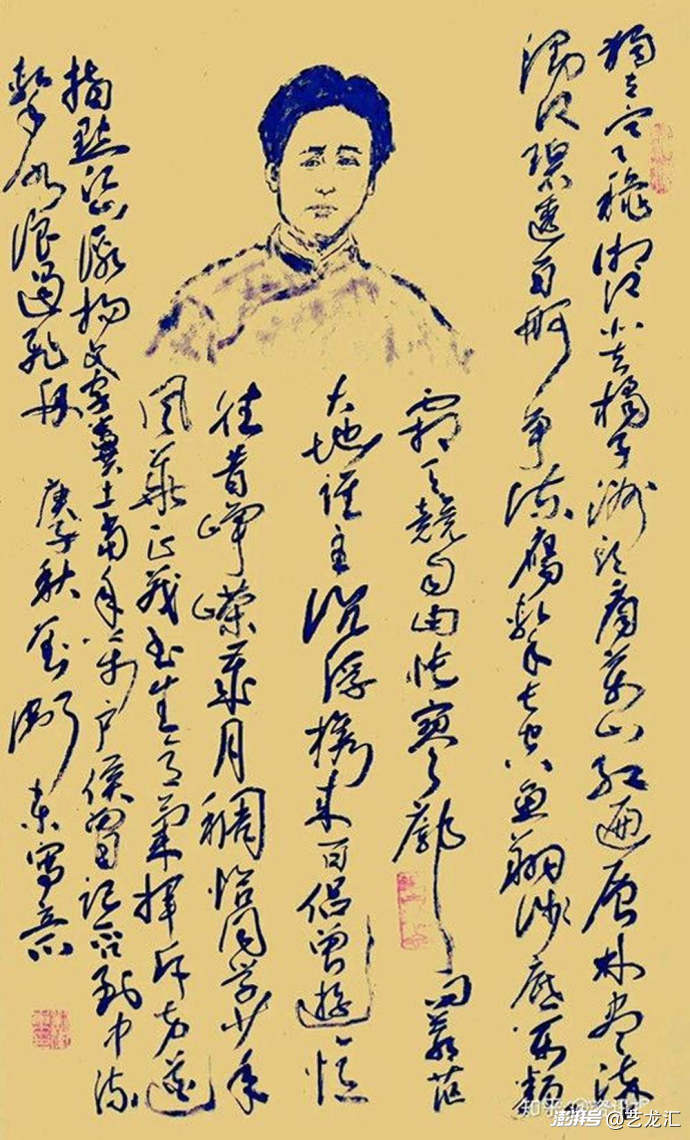 獨立寒秋湘江北去橘子洲头看万山红遍层林尽染
漫江碧透百舸争流鹰擊长空鱼翔浅底万类
霜天競自由怅寥廓问苍茫
大地谁主沉浮携来百侣曾游忆
往昔峥嵘岁月稠恰同学少年
风华正茂书生意气揮斥方遒
指點江山激扬文字粪土当年万户侯曾记否到中流
擊水浪遏飛舟 庚子秋 东寫意
知乎
澎湃号@艺龙汇